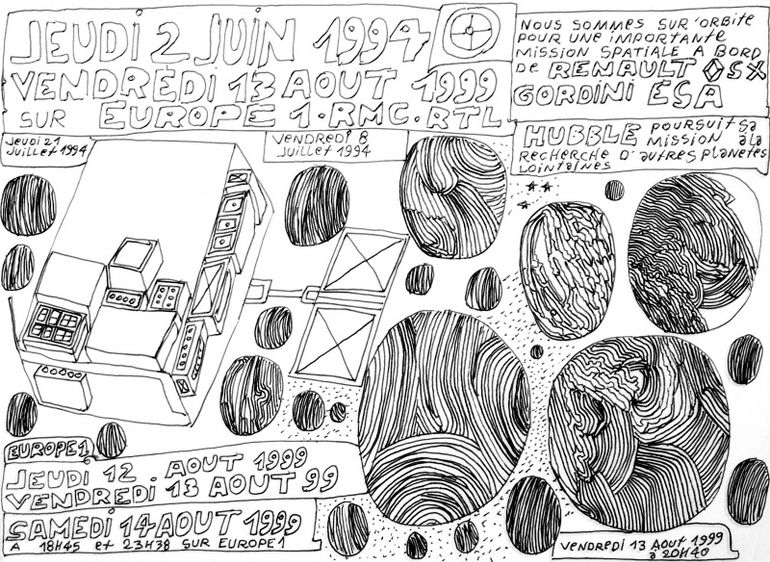 JEUDI 2 JUIN 1994
VENDREDI 13 AOUT 1999
SUR EUROPE 1.RMC.RTL
NOUS SOMMES SUR'ORBITE
POUR UNE IMPORTANTE
MISSION SPATIALE A BORD
DE RENAULT OSX
GORDINI ESA
HUBBLE POURSUIT SA
MISSION A LA
RECHERCHE D'AUTRES PLANETES
LOINTAINES
JEUDI 21
JUILLET 1994
VENDREDI 8
JUILLET 1994
EUROPE 1
JEUDI 12. AOUT 1999
VENDREDI 13 AOUT 99
SAMEDI 14 AOUT 1999
A 18H45 et 23H38 SUR EUROPE 1
VENDREDI 13 AOUT 1999
à 20H40